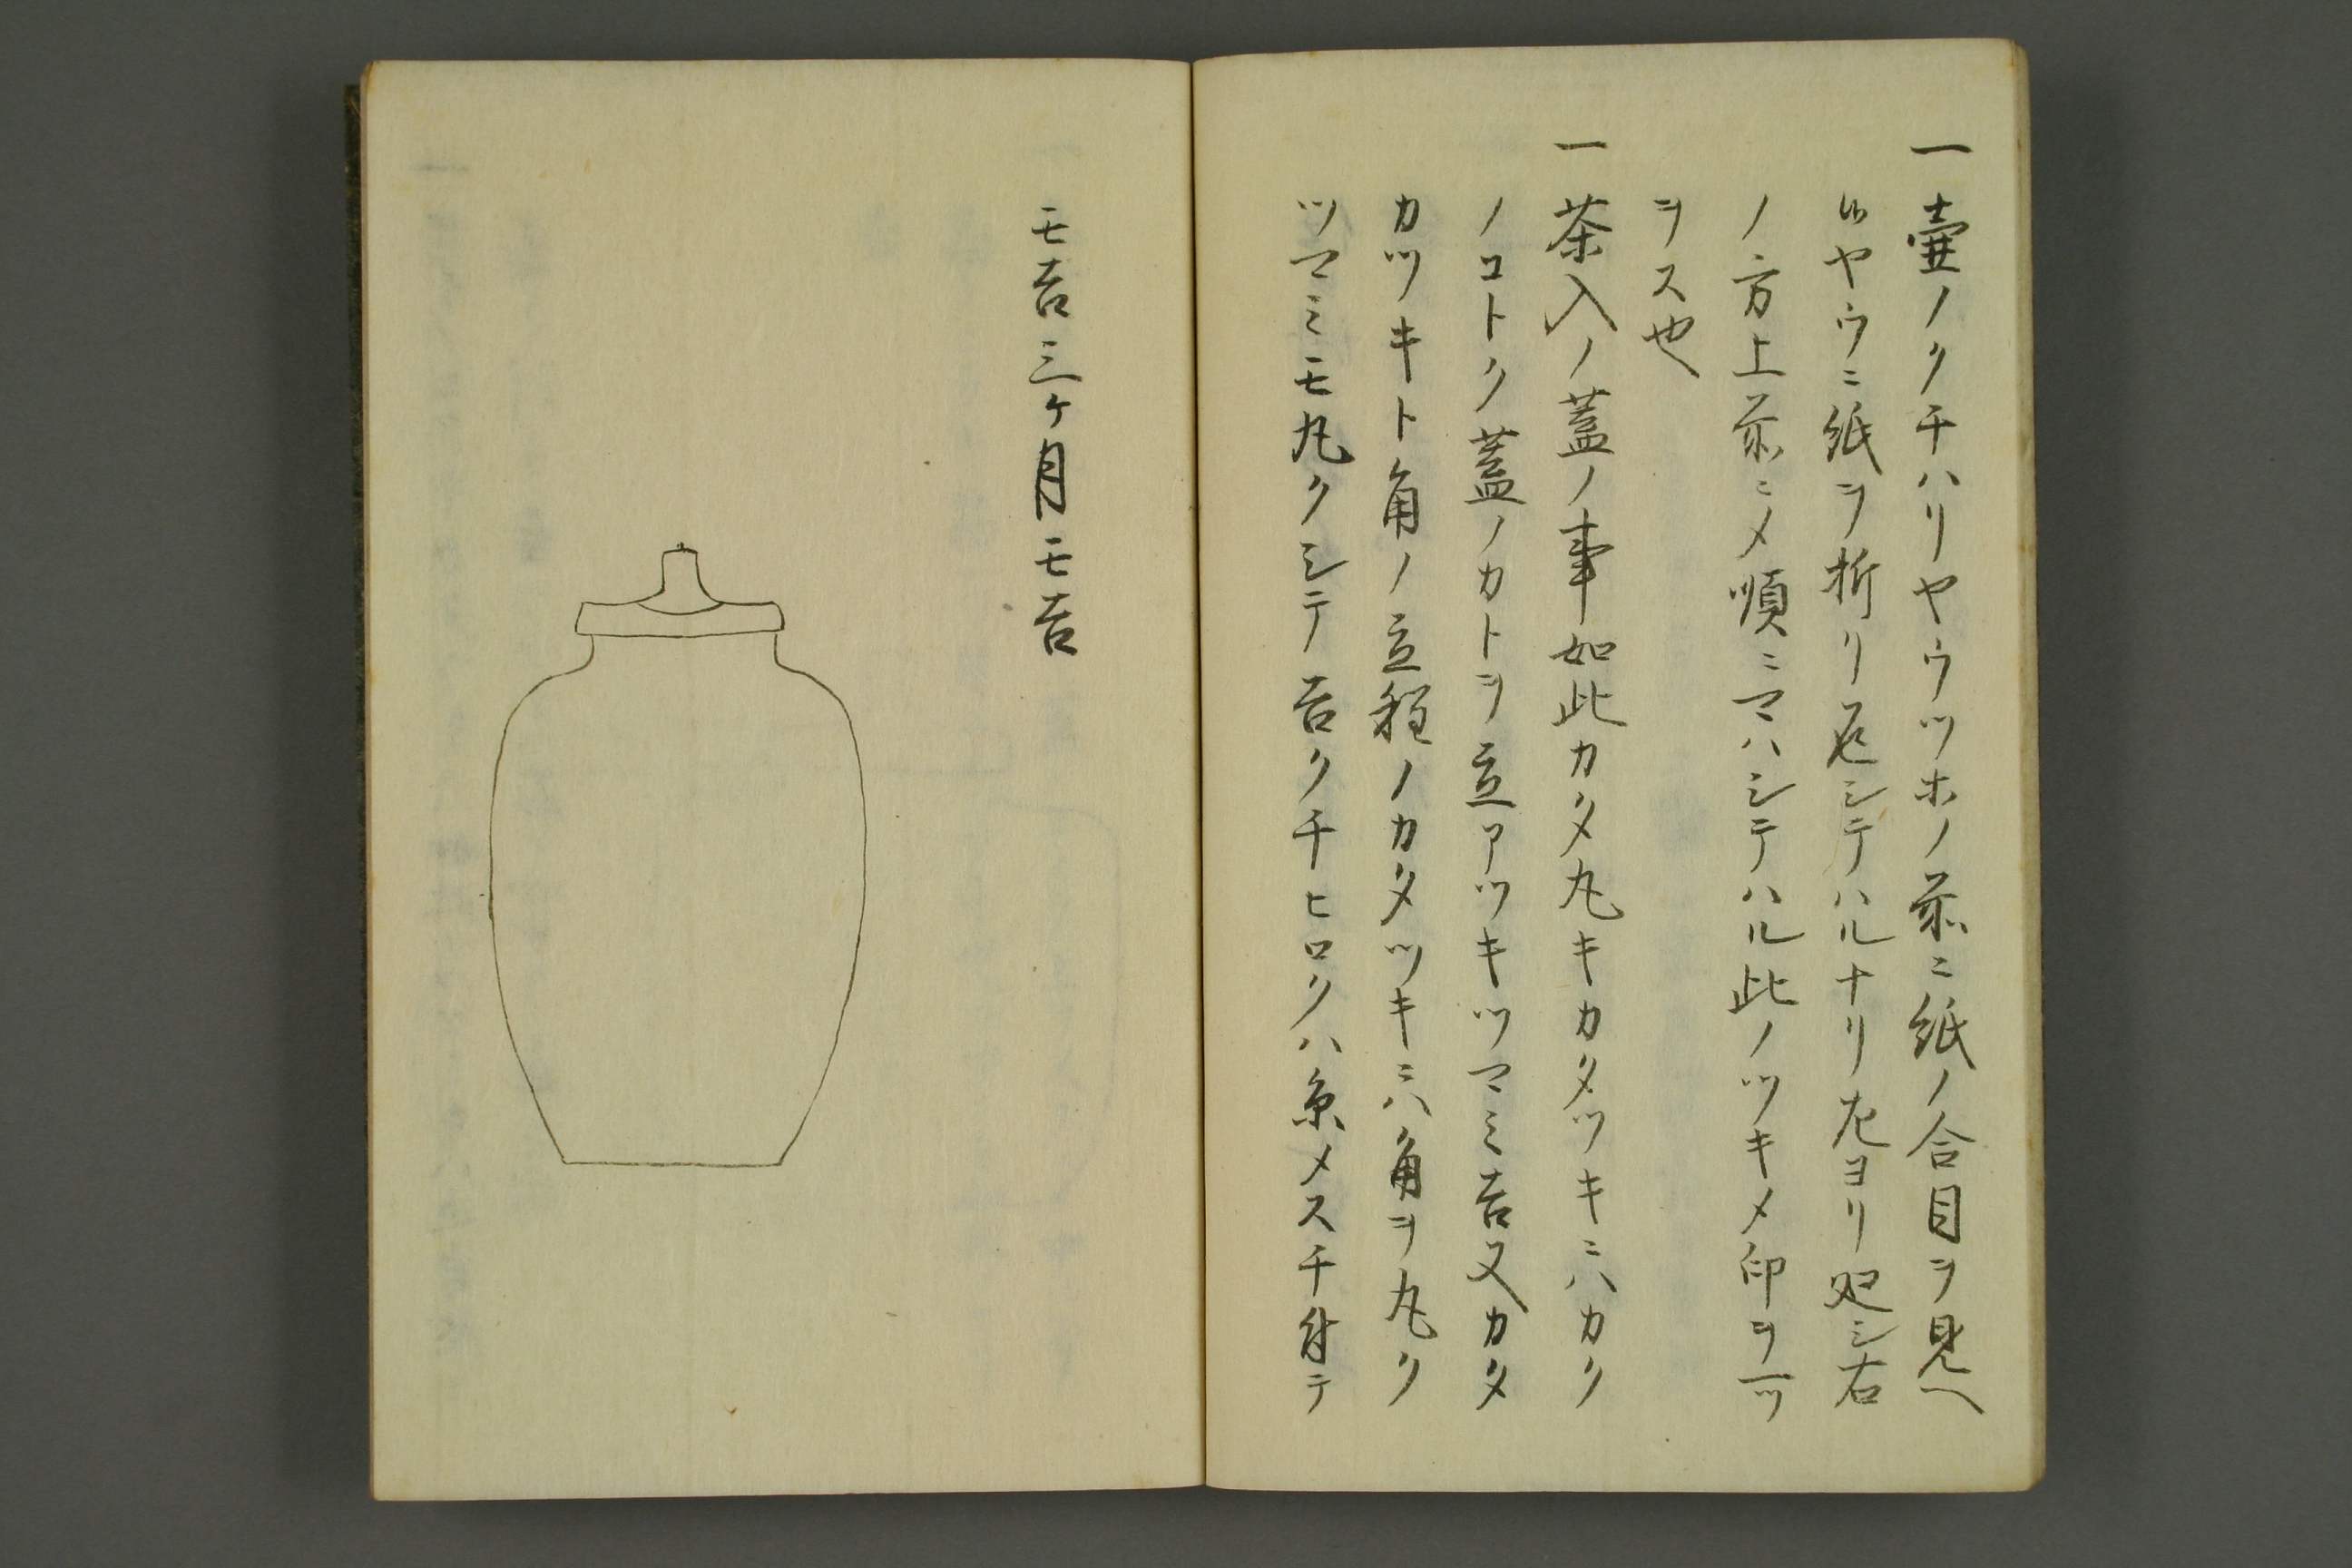 一壷ノクチハリヤウツホノ前ニ紙ノ合目ヲ見ヘ
ぬヤウニ紙ヲ折リ返シテハルナリ左ヨリ廻シ右
ノ方上前ニメ順ニマハシテハル此ノツキメ印ヲ一ツ
ヲス也
一茶入ノ蓋ノ事如此カタ丸キカタツキニハカク
ノコトク蓋ノカトヲ立アツキツマミ吉又カタ
カツキト角ノ立程ノカタツキニハ角ヲ丸ク
ツマミモ丸クシテ吉クチヒロクハ糸メスチ付テ
モ吉三ケ月モ吉